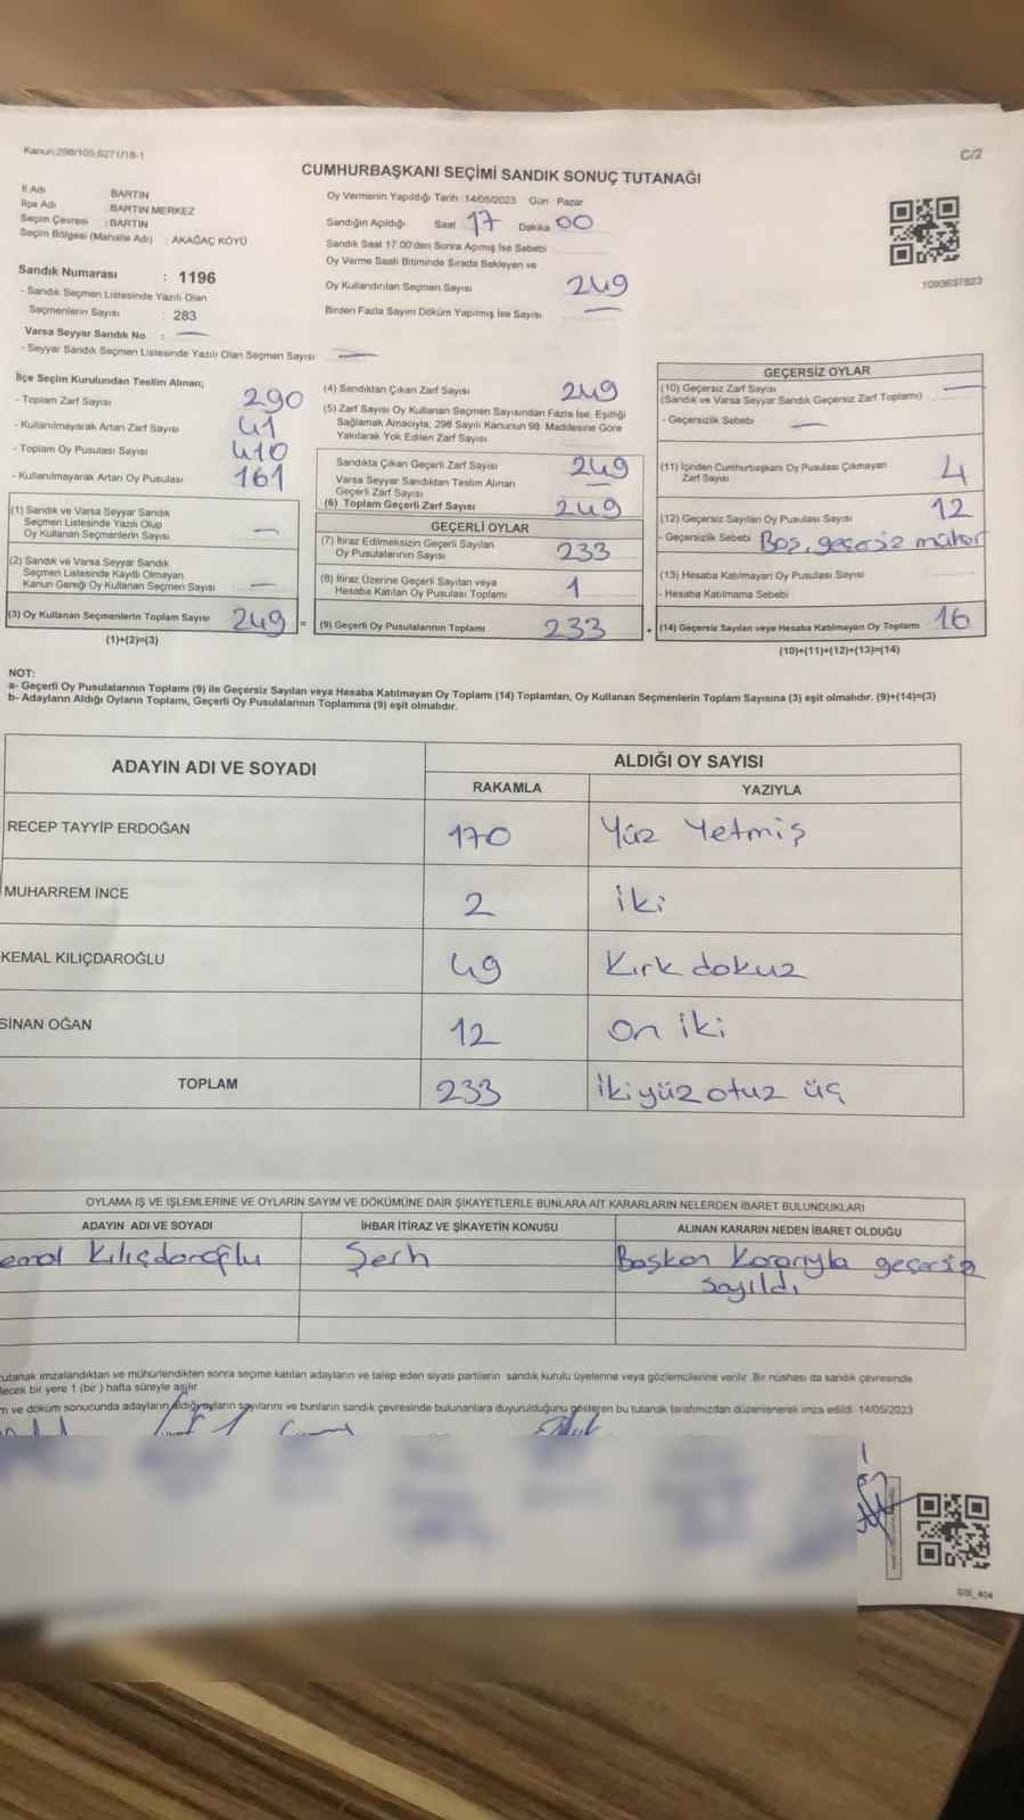 Kanun:298/105,6271/18-1
C/2
CUMHURBAŞKANI SEÇİMİ SANDIK SONUÇ TUTANAĞI
İl Adı BARTIN
İlçe Adı BARTIN MERKEZ
Seçim Çevresi : BARTIN
Seçim Bölgesi (Mahalle Adı) : AKAĞAÇ KÖYÜ
Oy Vermenin Yapıldığı Tarih :14/05/2023 Gün Pazar
Sandığın Açıldığı Saat 17 Dakika 00
Sandık Saat 17.00'den Sonra Açımış İse Sebebi
Oy Verme Saati Bitiminde Sırada Bekleyen ve
Oy Kullandırılan Seçmen Sayısı 249
Birden Fazla Sayım Döküm Yapılmış İse Sayısı —
1093637823
Sandık Numarası : 1196
- Sandık Seçmen Listesinde Yazılı Olan
Seçmenlerin Sayısı : 283
Varsa Seyyar Sandık No : —
- Seyyar Sandık Seçmen Listesinde Yazılı Olan Seçmen Sayısı —
İlçe Seçim Kurulundan Teslim Alınan;
- Toplam Zarf Sayısı 290
- Kullanılmayarak Artan Zarf Sayısı 41
- Toplam Oy Pusulası Sayısı 410
- Kullanılmayarak Artan Oy Pusulası 161
(1) Sandık ve Varsa Seyyar Sandık
Seçmen Listesinde Yazılı Olup
Oy Kullanan Seçmenlerin Sayısı —
(2) Sandık ve Varsa Seyyar Sandık
Seçmen Listesinde Kayıtlı Olmayan
Kanun Gereği Oy Kullanan Seçmen Sayısı —
(3) Oy Kullanan Seçmenlerin Toplam Sayısı 249 =
(1)+(2)=(3)
(4) Sandıktan Çıkan Zarf Sayısı 249
(5) Zarf Sayısı Oy Kullanan Seçmen Sayısından Fazla İse, Eşitliği
Sağlamak Amacıyla, 298 Sayılı Kanunun 98. Maddesine Göre
Yakılarak Yok Edilen Zarf Sayısı
Sandıkta Çıkan Geçerli Zarf Sayısı 249
Varsa Seyyar Sandıktan Teslim Alınan
Geçerli Zarf Sayısı —
(6) Toplam Geçerli Zarf Sayısı 249
GEÇERLİ OYLAR
(7) İtiraz Edilmeksizin Geçerli Sayılan
Oy Pusulalarının Sayısı 233
(8) İtiraz Üzerine Geçerli Sayılan veya
Hesaba Katılan Oy Pusulası Toplamı 1
(9) Geçerli Oy Pusulalarının Toplamı 233 +
GEÇERSİZ OYLAR
(10) Geçersiz Zarf Sayısı —
(Sandık ve Varsa Seyyar Sandık Geçersiz Zarf Toplamı)
- Geçersizlik Sebebi —
(11) İçinden Cumhurbaşkanı Oy Pusulası Çıkmayan
Zarf Sayısı 4
(12) Geçersiz Sayılan Oy Pusulası Sayısı 12
- Geçersizlik Sebebi Boş, geçersiz mühür
(13) Hesaba Katılmayan Oy Pusulası Sayısı
- Hesaba Katılmama Sebebi
(14) Geçersiz Sayılan veya Hesaba Katılmayan Oy Toplamı 16
(10)+(11)+(12)+(13)=(14)
NOT:
a- Geçerli Oy Pusulalarının Toplamı (9) ile Geçersiz Sayılan veya Hesaba Katılmayan Oy Toplamı (14) Toplamları, Oy Kullanan Seçmenlerin Toplam Sayısına (3) eşit olmalıdır. (9)+(14)=(3)
b- Adayların Aldığı Oyların Toplamı, Geçerli Oy Pusulalarının Toplamına (9) eşit olmalıdır.
ADAYIN ADI VE SOYADI
ALDIĞI OY SAYISI
RAKAMLA YAZIYLA
RECEP TAYYİP ERDOĞAN 170 Yüz Yetmiş
MUHARREM İNCE 2 iki
KEMAL KILIÇDAROĞLU 49 Kırk dokuz
SİNAN OĞAN 12 on iki
TOPLAM 233 iki yüz otuz üç
OYLAMA İŞ VE İŞLEMLERİNE VE OYLARIN SAYIM VE DÖKÜMÜNE DAİR ŞİKAYETLERLE BUNLARA AİT KARARLARIN NELERDEN İBARET BULUNDUKLARI
ADAYIN ADI VE SOYADI İHBAR İTİRAZ VE ŞİKAYETİN KONUSU ALINAN KARARIN NEDEN İBARET OLDUĞU
emal Kılıçdaroğlu Şerh Başkan Kararıyla geçersiz
sayıldı
utanak imzalandıktan ve mühürlendikten sonra seçime katılan adayların ve talep eden siyasi partilerin sandık kurulu üyelerine veya gözlemcilerine verilir. Bir nüshası da sandık çevresinde
lecek bir yere 1 (bir ) hafta süreyle asılır
m ve döküm sonucunda adayların aldığı oyların sayılarını ve bunların sandık çevresinde bulunanlara duyurulduğunu gösteren bu tutanak tarafımızdan düzenlenerek imza edildi. 14/05/2023